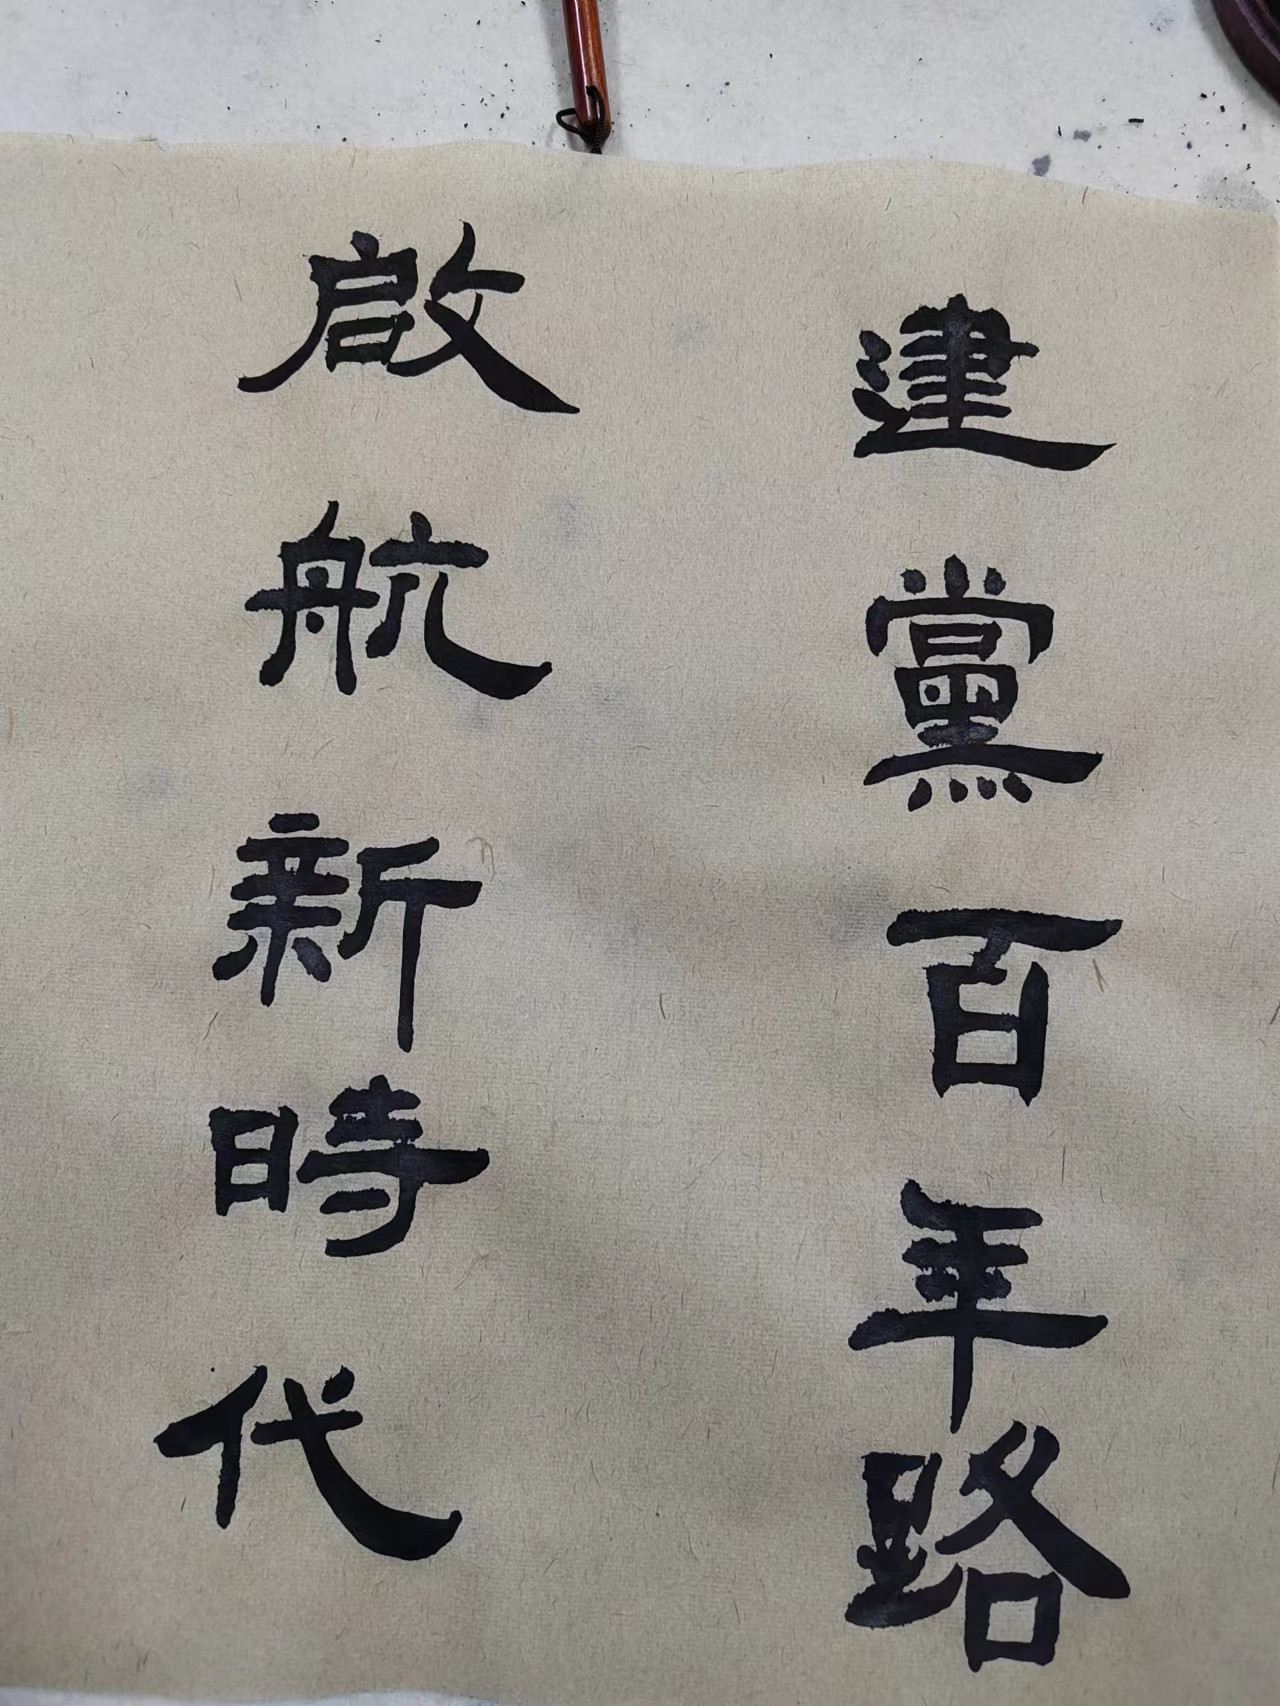 建黨百年路
啟航新時代